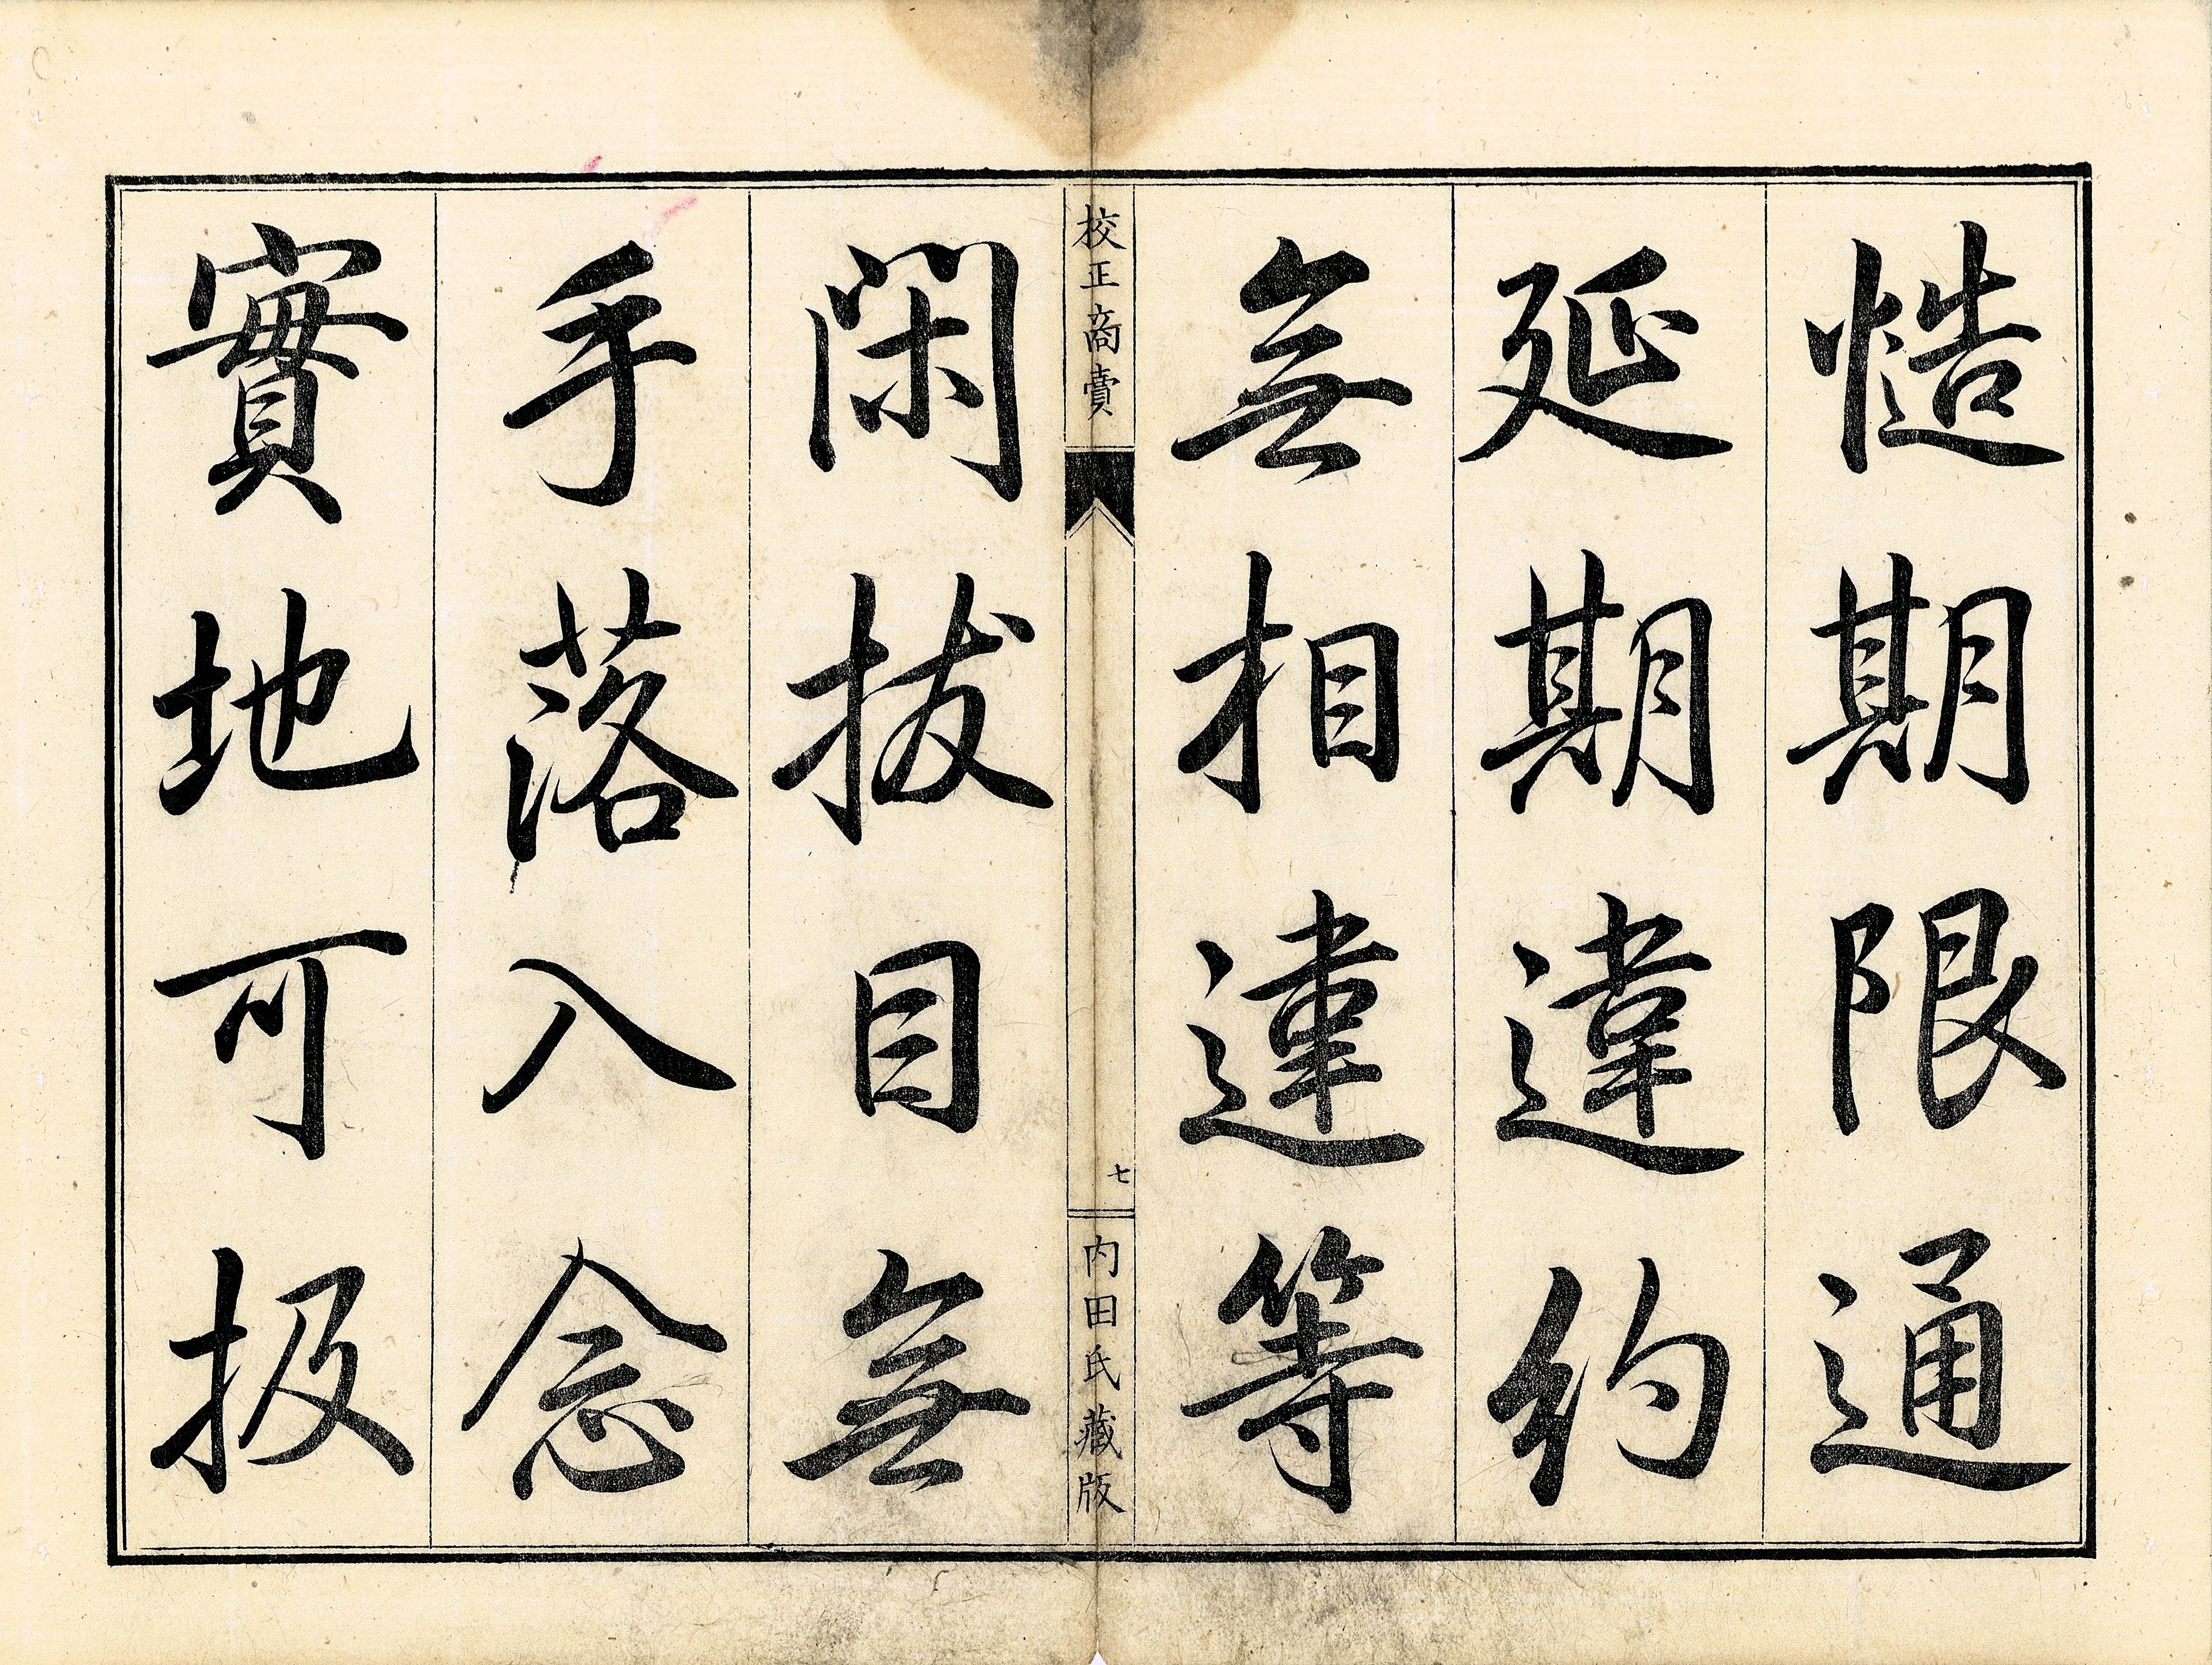 慥期限通
延期違約
無相違等
校正商賣
七
内田氏藏版
閑抜目無
手落入念
實地可扱